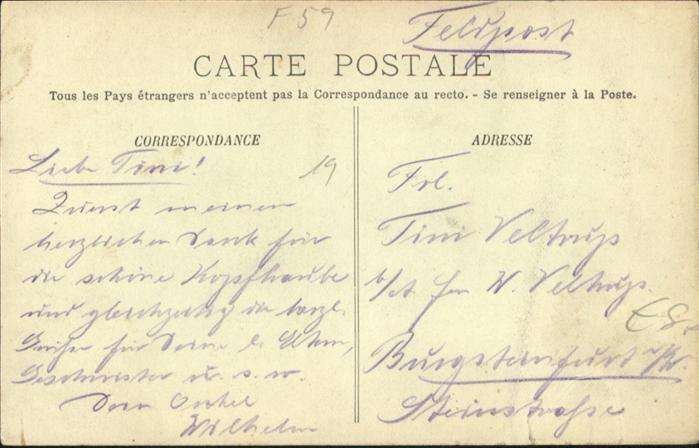 F 59
Feldpost
CARTE POSTALE
Tous les Pays étrangers n'acceptent pas la Correspondance au recto. - Se renseigner à la Poste.
CORRESPONDANCE
Liebe Tini!
19
Zuerst meinen
herzlichen Dank für
die schöne Kopfhaube
und gleichzeitig die herzl.
Grüße für Deine l. Eltern,
Geschwister u. s. w.
Dein Onkel
Wilhelm
ADRESSE
Frl.
Tini Veltrup
W. Veltrup.
Burgsteinfurt
Steinstraße